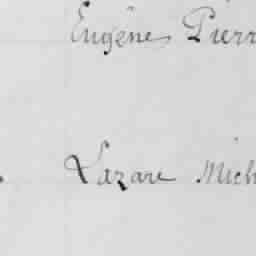 Eugène Pierr
Lazare Mich